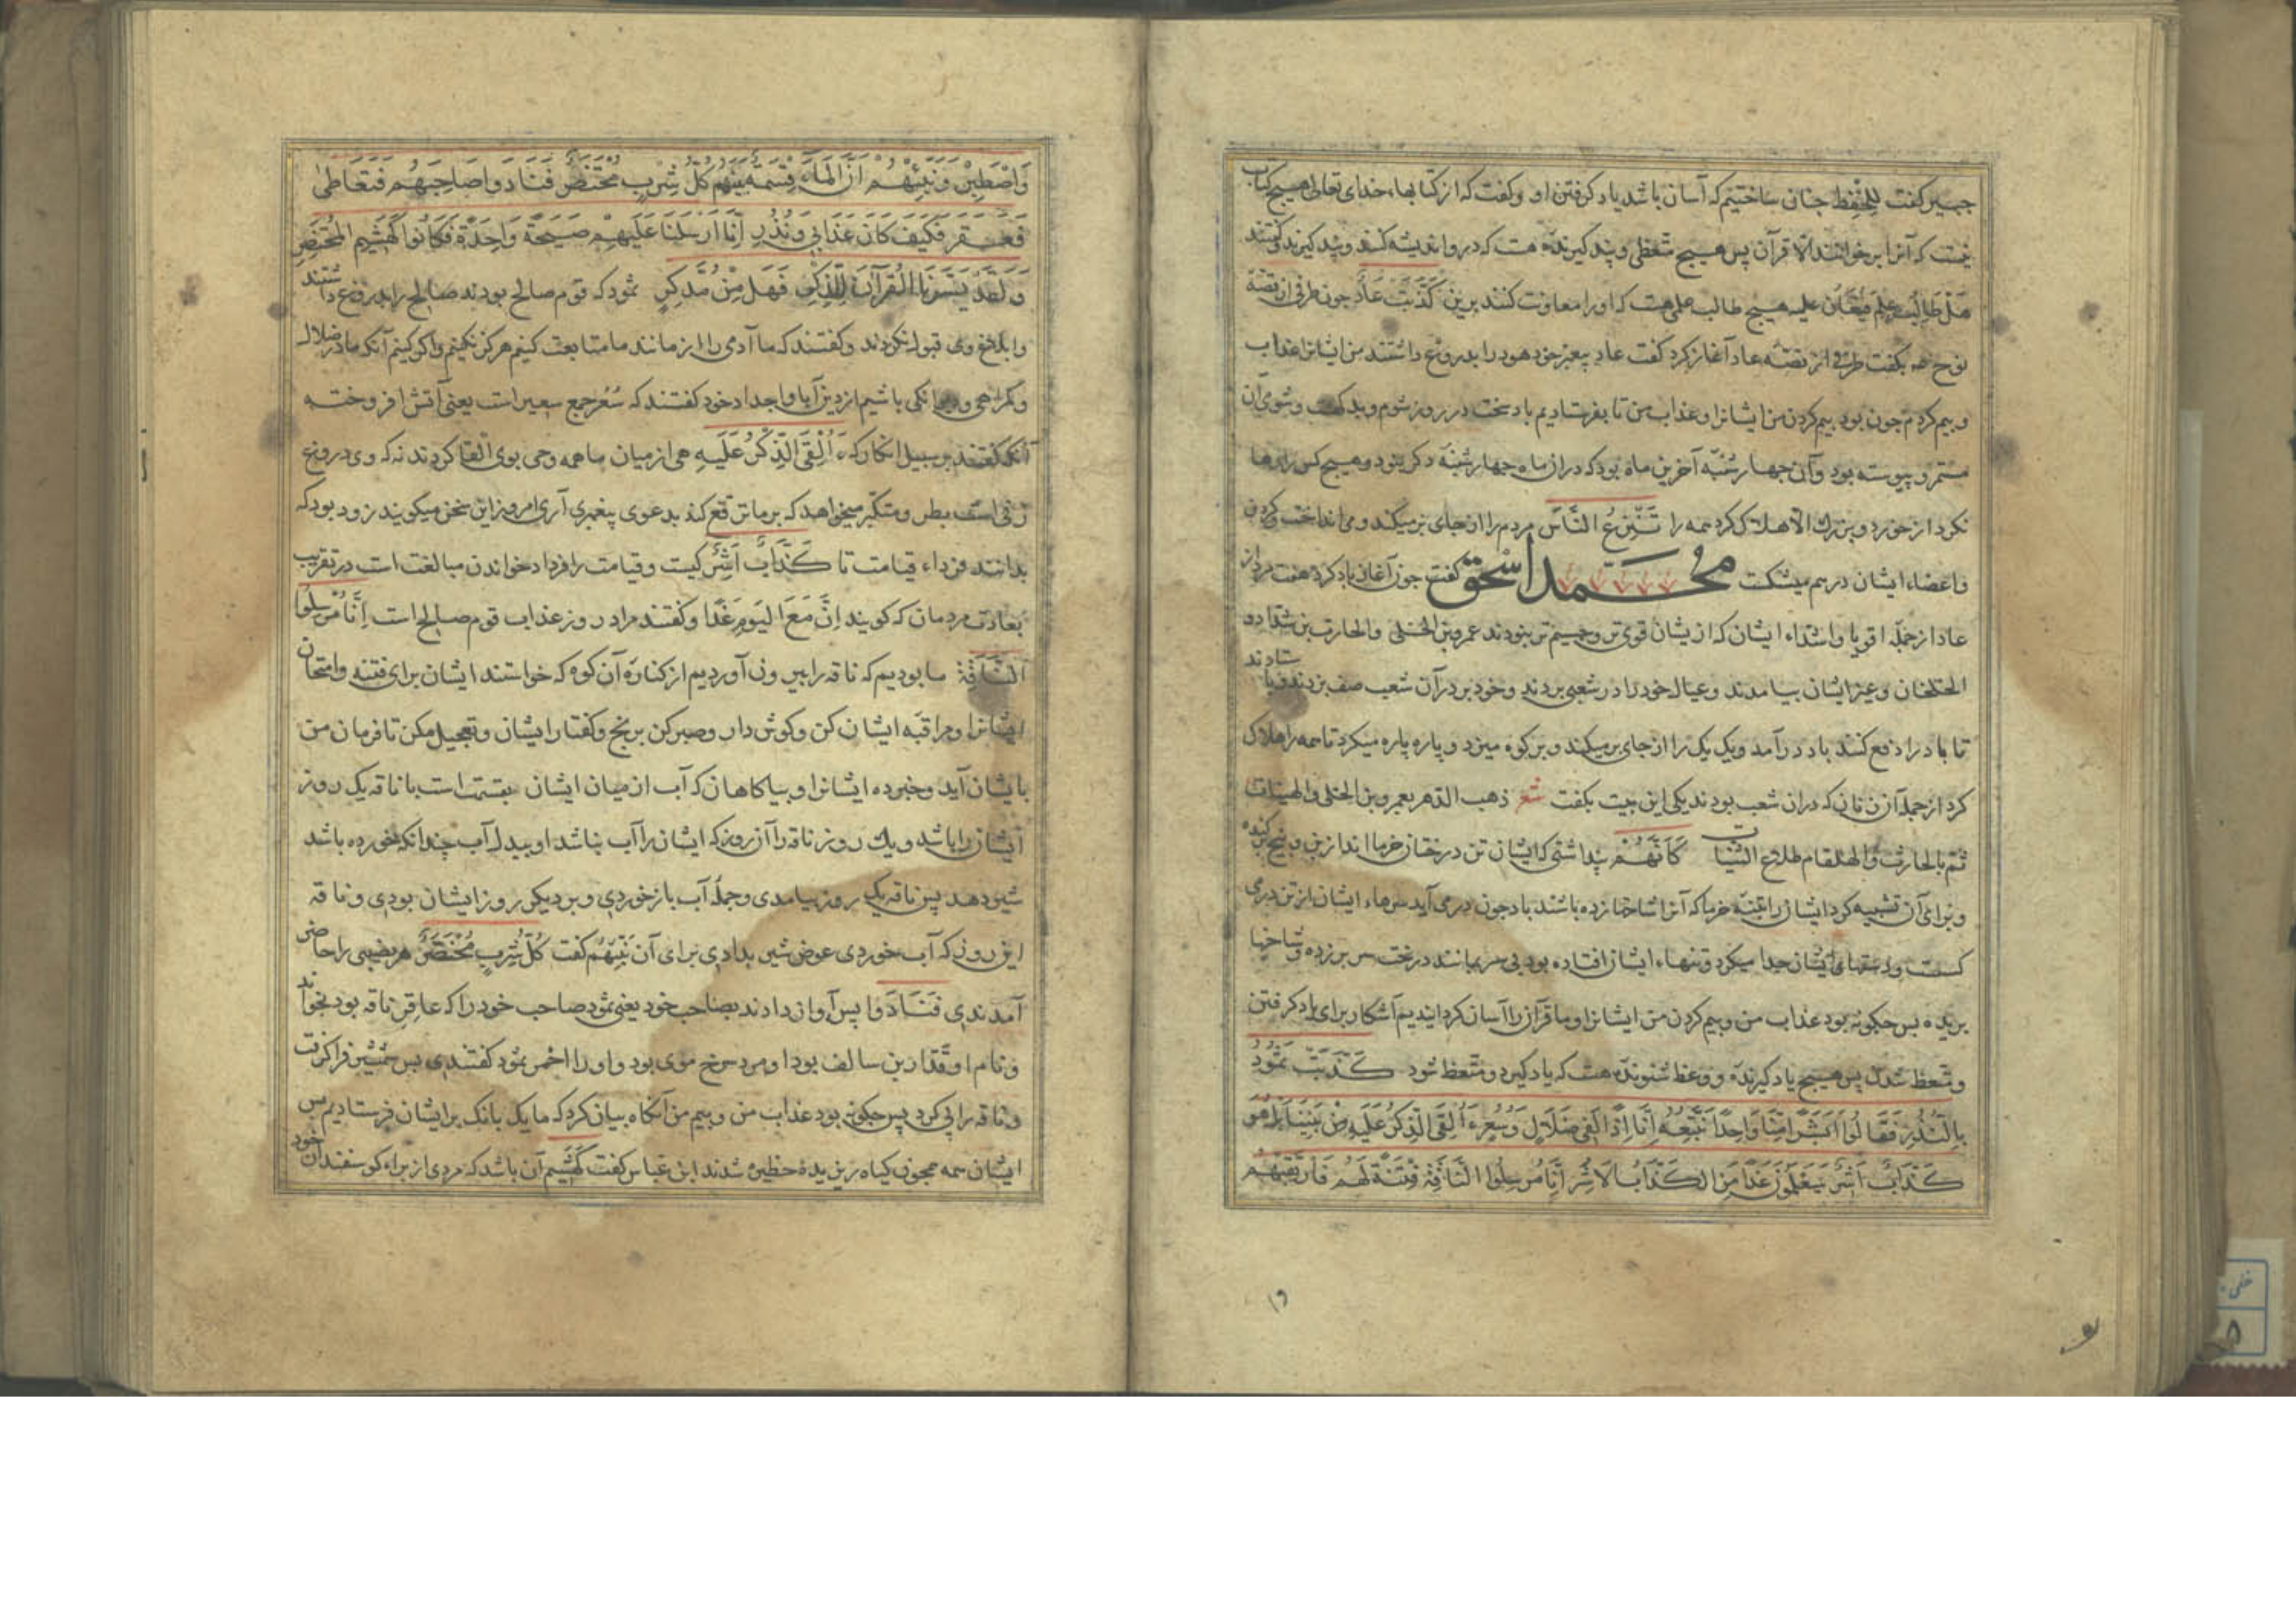 جبیر کفت للحفظ جنان ساختیم که آسان باشد یاد کرفتن او و کفت که از کتابهاء خدای تعالی هیچ کتاب
نیست که آنرا بر خوانند الا قرآن پس هیچ متعظی و پند کیرنده هست که در و اندیشه کند و پند کیرند و کفتند
هل طالب علم فیعان علیه هیچ طالب علمی هست که او را معاونت کنند برین کَذَّبَتْ عَادٌ جون طرفی از قصّهٔ
نوح عه بکفت طرفی از قصّه عاد آغاز کرد کفت عاد پیغبر خود هود را بدروغ داشتند من ایشانرا عذاب
و بیم کردم جون بود بیم کردن من ایشانرا و عذاب من تا بفرستادیم باد سخت در روز شوم و بد کفت و شوی آن
مستمر و پیوسته بود و آن جهار شنبه آخرین ماه بود که در ان ماه جهار شنبه دکر نبود و هیچ کس را رها
نکرد از خورد و بزرك الا هلاک کرد همه را تَنْزِعُ النَّاسَ مردم را از جای بر میکند و می انداخت و کردن
و اعضاء ایشان در هم میشکت محمد اسحق کفت جون آغاز باد کرد هفت مرد از
عاد از جملّه اقویا و اشدّاء ایشان که از یشان قوی تر و جسیم تر بنودند عمرو بن الحلی والحارث بن شداد و
الهلقام و غیر ایشان بیامدند و عیال خود را در شعبی بردند و خود بر در آن شعب صف بر زدند و بایستادند
تا باد را دفع کنند باد در آمد و یک یک را از جای بر میکند و بر کوه میزد و پاره پاره میکرد تا همه را هلاک
کرد از جملهٔ آن زنان که دران شعب بودند یکی این بیت بکفت شعر ذهب الدهر بعمرو بن الحلی والهنیات
ثم بالحارث والهلقام طلاع الثنیات کَأَنَّهُمْ پنداشتی که ایشان تن درختان خرما اند از بن و بیخ بر کنده
و برای آن تشبیه کرد ایشان را بتنه خرما که آنرا شاخها زده باشند باد جون در می آید سرهاء ایشان از تن در می
کست و دستهای ایشان جدا میکرد و تنهاء ایشان افتاده بود بی سر بمانند درخت سر بر زده و شاخها
بریده بس جکونه بود عذاب من و بیم کردن من ایشانرا و ما قرآن را آسان کردانیدیم آشکار برای یاد کرفتن
و متعظ شدن پس هیچ یاد کیرنده و وعظ شنونده هست که یاد کیرد و متعظ شود کَذَّبَتْ ثَمُودُ
بِالنُّذُرِ فَقَالُوا أَبَشَرًا مِنَّا وَاحِدًا نَتَّبِعُهُ إِنَّا إِذًا لَفِي ضَلَالٍ وَسُعُرٍ ءَأُلْقِيَ الذِّكْرُ عَلَيْهِ مِنْ بَيْنِنَا بَلْ هُوَ
كَذَّابٌ أَشِرٌ سَيَعْلَمُونَ غَدًا مَنِ الْكَذَّابُ الْأَشِرُ إِنَّا مُرْسِلُوا النَّاقَةِ فِتْنَةً لَهُمْ فَارْتَقِبْهُمْ
وَاصْطَبِرْ وَنَبِّئْهُمْ أَنَّ الْمَاءَ قِسْمَةٌ بَيْنَهُمْ كُلُّ شِرْبٍ مُحْتَضَرٌ فَنَادَوْا صَاحِبَهُمْ فَتَعَاطَى
فَعَقَرَ فَكَيْفَ كَانَ عَذَابِي وَنُذُرِ إِنَّا أَرْسَلْنَا عَلَيْهِمْ صَيْحَةً وَاحِدَةً فَكَانُوا كَهَشِيمِ الْمُحْتَظِرِ
وَلَقَدْ يَسَّرْنَا الْقُرْآنَ لِلذِّكْرِ فَهَلْ مِنْ مُدَّكِرٍ ثمود که قوم صالح بودند صالح را بدروغ داشتند
و ابلاغ وی قبول نکردند و کفتند که ما آدمی را از مانند ما متابعت کنیم هرکز نکنیم و اکر کنیم آنکه ما در ضلال
و کمراهی و دیوانکی باشیم از دین آبا و اجداد خود کفتند که سُعُر جمع سعیر است یعنی آتش افروخته
آنکه کفتند بر سبیل انکار که ءَأُلْقِيَ الذِّكْرُ عَلَيْهِ هی از میان ما همه وحی بوی القا کردند نه که وی دروغ
زنی است بطر و متکبّر میخواهد که بر ما ترفّع کند بدعوی پیغبری آری امروز این سخن میکویند زود بود که
بدانند فرداء قیامت تا كَذَّابٌ أَشِرٌ کیست و قیامت را فردا خواندن مبالغت است در تقریب
بعادت مردمان که کویند اِنَّ مَعَ الیَومِ غَدًا و کفتند مراد روز عذاب قوم صالح است إِنَّا مُرْسِلُوا
النَّاقَةِ ما بودیم که ناقه را بیرون آوردیم از کناره آن کوه که خواستند ایشان برای فتنه و امتحان
ایشانرا و مراقبه ایشان کن و کوش دار و صبر کن بر رنج و کفتار ایشان و تعجیل مکن تا فرمان من
بایشان آید و خبر ده ایشانرا و بیاکاهان که آب از میان ایشان بقسمت است با ناقه یک روز
ایشان را باشد و یك روز ناقه را آن روز که ایشان را آب نباشد او ببدل آب چندانکه خورده باشد
شیر دهد پس ناقه یک روز بیامدی و جملهٔ آب باز خوردی و بر دیکر روز ایشان بودی و ناقه
این روز که آب خوردی عوض شیر بدادی برای آن نَبِّئْهُمْ کفت كُلُّ شِرْبٍ مُحْتَضَرٌ هر نصیبی را حاضر
آمدندی فَنَادَوْا پس آواز دادند بصاحب خود یعنی ثمود صاحب خود را که عاقر ناقه بود بخواندند
و نام او قُدار بن سالف بود او مرد سرخ موی بود و او را احمر ثمود کفتندی بس شمشیر فرا کرفت
و ناقه را پی کرد پس جکونه بود عذاب من و بیم من آنکاه بیان کرد که ما یک بانک بر ایشان فرستادیم بس
ایشان همه همجون کیاه ریزیدهٔ حظیره شدند ابن عباس کفت كَهَشِيمِ آن باشد که مردی از براء کوسفندان خود